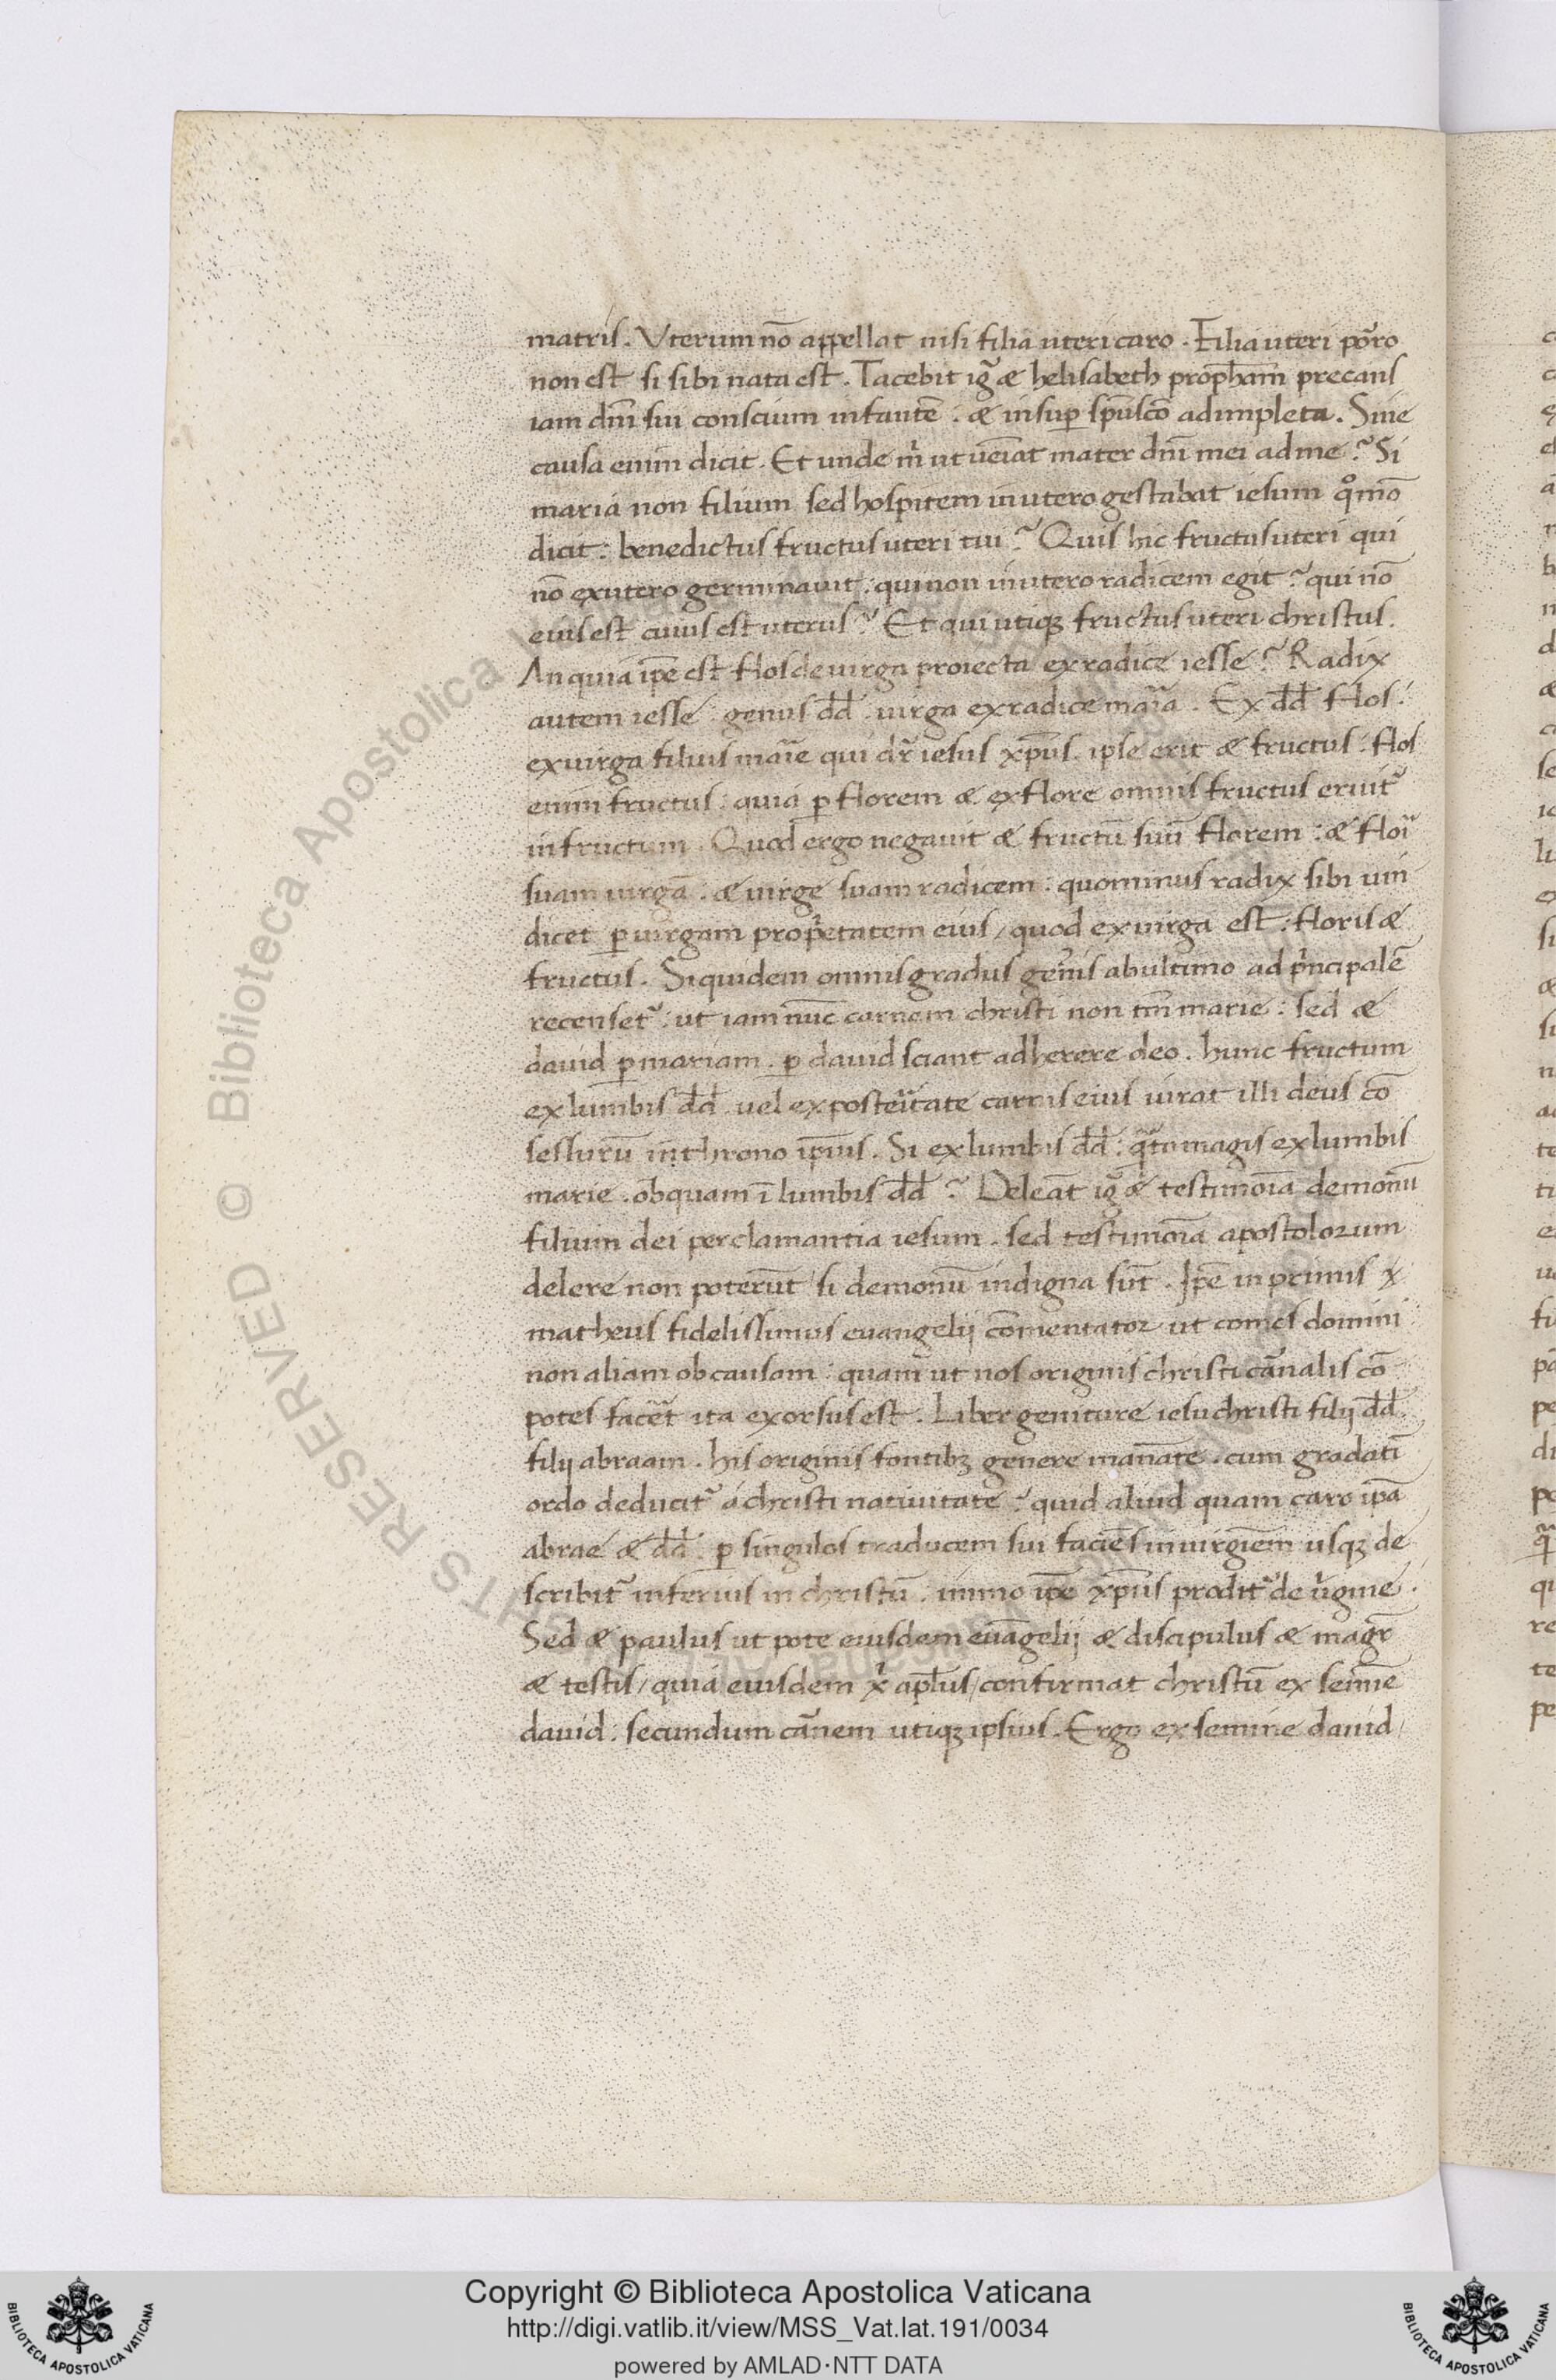 matris. Vterum nō appellat nisi filia uteri caro. Filia uteri pōro
non est si sibi nata est. Tacebit igͬ & helisabeth prop̄ham̄ precans
iam dn̄i sui conscium infantē. & insuꝑ sp̄usc̄o adimpleta. Sine
causa enim dicit. Et unde m̄ ut uēiat mater dn̄i mei ad me? Si
maria non filium sed hospitem in utero gestabat iesum qͦmō
dicit: benedictus fructus uteri tui? Quis hic fructus uteri qui
nō ex utero germinauit: qui non in utero radicem egit? qui nō
eius est cuius est uterus? Et qui utiqꝫ fructus uteri christus.
An quia ip̄e est flos de uirga proiecta ex radice iesse? Radix
autem iesse: genus dd̄. uirga ex radice maīa. Ex dd̄ flos.
ex uirga filius maīe qui dr̄ iesus xp̄us. ipse erit & fructus: flos
enim fructus: quia ꝑ florem & ex flore omnis fructus eruitͬ
in fructum. Quod ergo negauit & fructū suū florem: & floī
suam uirgā: & uirge suam radicem: quominus radix sibi uin
dicet ꝑ uirgam prop̄etatem eius, quod ex uirga est: floris &
fructus. Siquidem omnis gradus gen̄is ab ultimo ad p̄ncipalē
recensetͬ: ut iam nūc carnem christi non tm̄ marie: sed &
dauid ꝑ mariam. ꝑ dauid sciant adherere deo. hunc fructum
ex lumbis dd̄. uel ex posteītate carnis eius iurat illi deus cō
sessurū in throno ip̄ius. Si ex lumbis dd̄: qͣto magis ex lumbis
marie. ob quam ī lumbis dd̄? Deleāt igͬ & testimoīa demonū
filium dei perclamantia iesum. sed testimoīa apostolorum
delere non poterūt si demonū indigna sūt. Ip̄e in primis x
matheus fidelissimus euangelij cōmentator ut comes domini
non aliam ob causam: quam ut nos originis christi cānalis cō
potes facēt ita exorsus est. Liber geniture iesu christi filij dd̄.
filij abraam. his originis fontibꝫ genere manāte. cum gradatī
ordo deducitͬ a christi natiuitate? quid aliud quam caro ip̄a
abrae & dd̄. ꝑ singulos traducem sui faciēs in uirgiēm usqꝫ de
scribitͬ inferius in christū: immo ip̄e xp̄us proditͬ de ūgine.
Sed & paulus ut pote eiusdem euāgelij & discipulus & magr̄
& testis, quia eiusdem x̄ aplūs, confirmat christū ex semīe
dauid: secundum cānem utiqꝫ ipsius. Ergo ex semine dauid,
© Biblioteca Apostolica Vaticana ALL RIGHTS RESERVED
Copyright © Biblioteca Apostolica Vaticana
http://digi.vatlib.it/view/MSS_Vat.lat.191/0034
powered by AMLAD·NTT DATA
BIBLIOTECA APOSTOLICA VATICANA
BIBLIOTECA APOSTOLICA VATICANA